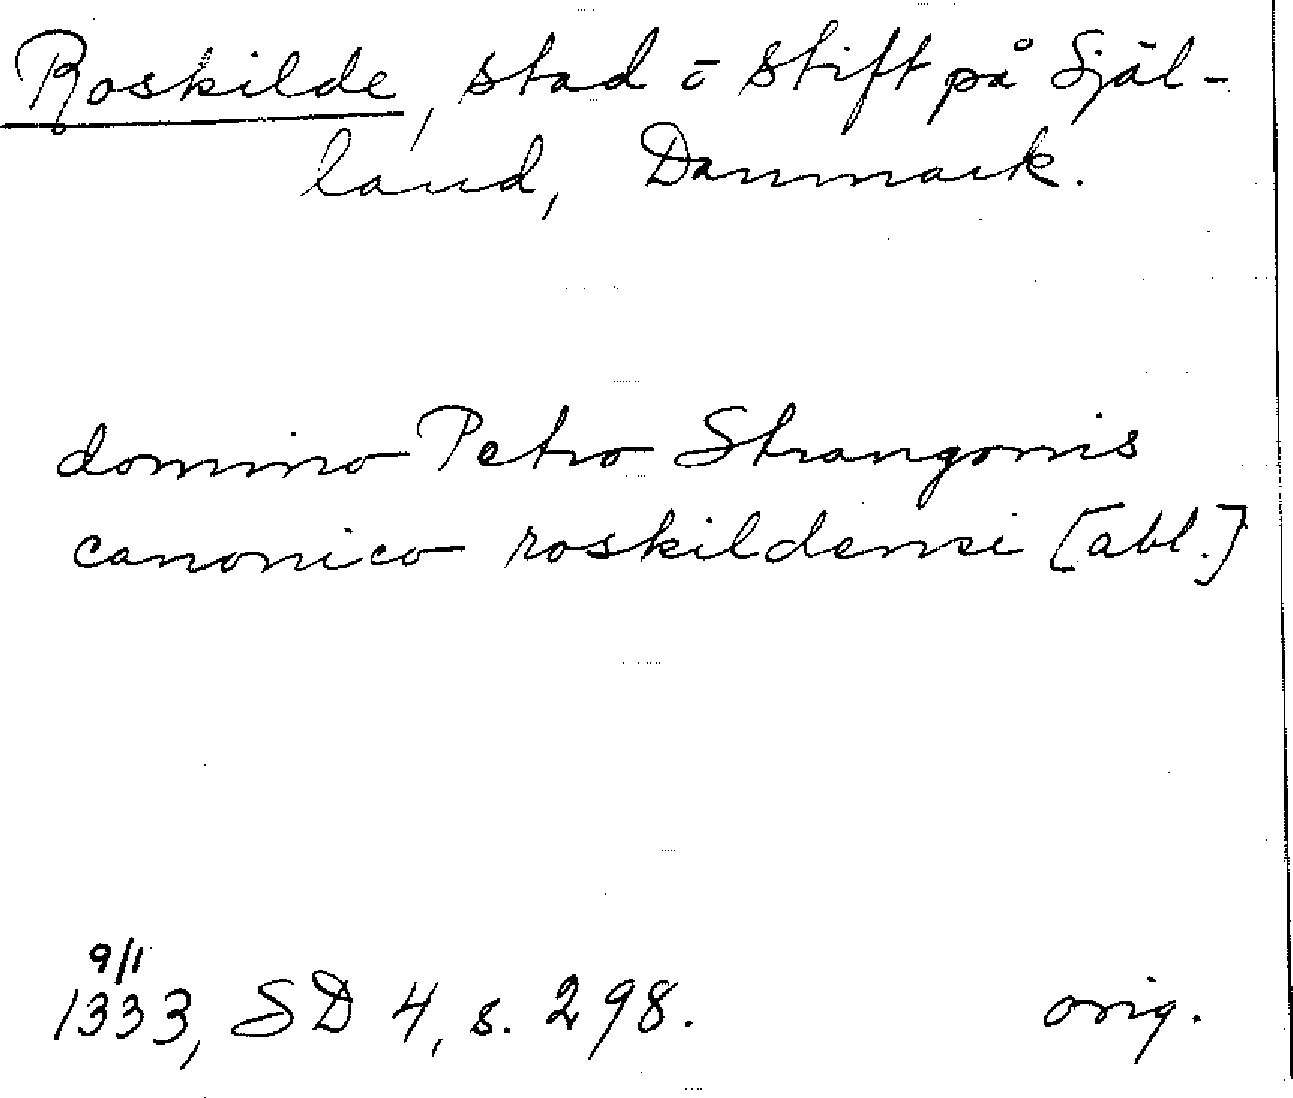 Roskilde, stad o stift på Själ-
land, Danmark.
domino Petro Strangonis
canonico roskildensi [abl.]
9/1
1333, SD 4, s. 298. orig.